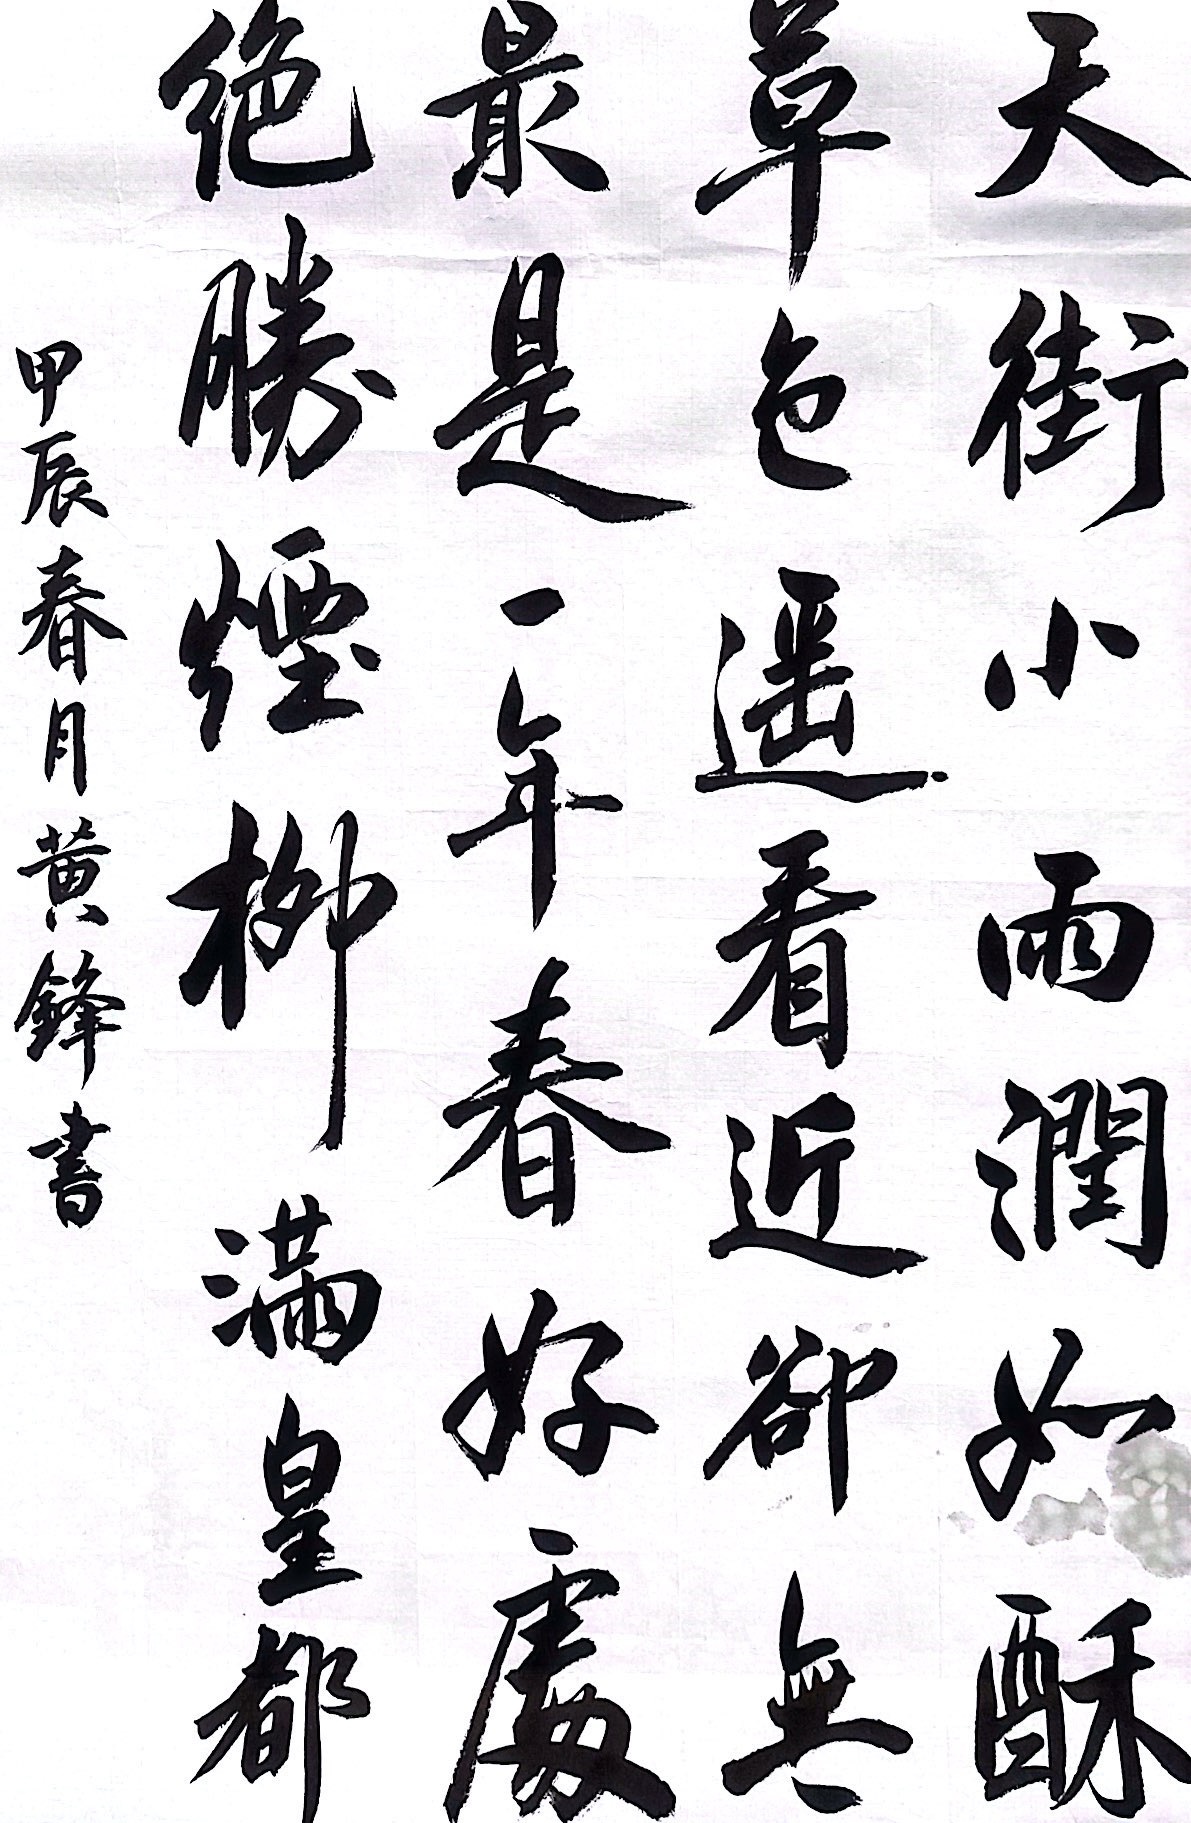 天街小雨潤如酥
草色遥看近卻無
最是一年春好處
絶勝煙柳滿皇都
甲辰春月黄鋒書